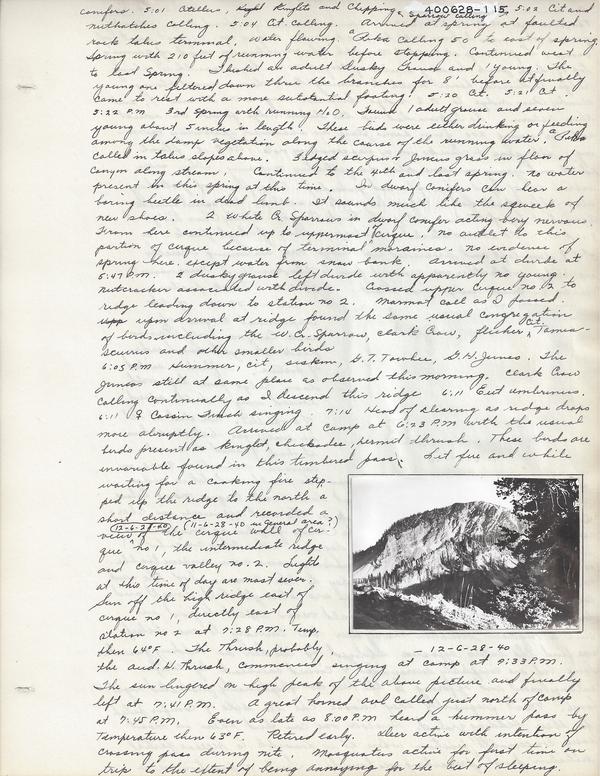 conifers. 5:01 Citellus, Kinglets and Chipping Sparrow calling. 5:02 Cit and
400628-115
nuthatches calling. 5:04 Cit. calling. Arrived at spring at faulted
rock talus terminal, water flowing. Pika calling 50' to east of spring.
Spring with 210 feet of running water before stopping. Continued west
to last Spring. Flushed an adult dusky Grouse and 1 young. The
young one fluttered down thru the branches for 8' before it finally
came to rest with a more substantial footing! 5:20 Cit. 5:21 Cit.
5:22 P.M. 3rd Spring with running H2O. Found 1 adult grouse and seven
young about 5 inches in length. These birds were either drinking or feeding
among the damp vegetation along the course of the running water. A Pika
called in talus slopes above. Juncus grass in floor of
canyon along stream. Continued to the 4th and last spring. No water
present in this spring at this time. In dwarf conifers can hear a
boring beetle in dead limb. It sounds much like the squeek of
new shoes. 2 White Cr. Sparrows in dwarf conifer acting very nervous.
From here continued up to uppermost cirque. No outlet to this
portion of cirque because of terminal moraines. No evidence of
spring here except water from snow bank. Arrived at divide at
5:47 P.M. 2 dusky grouse left divide with apparently no young.
Nutcracker associated with divide. Crossed upper Cirque no 2 to
ridge leading down to station no 2. Marmot call as I passed.
upon arrival at ridge found the same usual congregation
of birds including the W. Cr. Sparrow, Clark Crow, flicker, Cit. Tamia-
sciurus and other smaller birds
6:05 P.M. Hummer, cit, siskin, G.T. Towhee, G.H. Junco. The
Juncos still at same place as observed this morning. Clark Crow
calling continually as I descend this ridge. 6:11 Eut umbrinus.
6:11 ♀ Cassin Finch singing. 7:14 Head of clearing as ridge drops
more abruptly. Arrived at camp at 6:23 P.M. with the usual
birds present as kinglet, chickadee, hermit thrush. These birds are
invariable found in this timbered pass. Lit fire and while
waiting for a cooking fire step-
ped up the ridge to the north a
short distance and recorded a
12-6-28-40 (11-6-28-40 in general area?)
view of the cirque wall of cir-
que no 1, the intermediate ridge
and cirque valley no. 2. Lights
at this time of day are most sever.
Sun off the high ridge east of
cirque no 1, directly east of
station no 2 at 7:28 P.M. Temp.
then 64°F. The Thrush, probably,
— 12-6-28-40
the Aud. H. Thrush, commenced singing at camp at 7:33 P.M.
The sun lingered on high peak of the above picture and finally
left at 7:41 P.M. A great horned owl called just north of camp
at 7:45 P.M. Even as late as 8:00 P.M. heard a hummer pass by
Temperature then 63°F. Retired early. Deer active with intention of
crossing pass during nite. Mosquatos active for first time on
trip to the extent of being annoying for the best of sleeping.